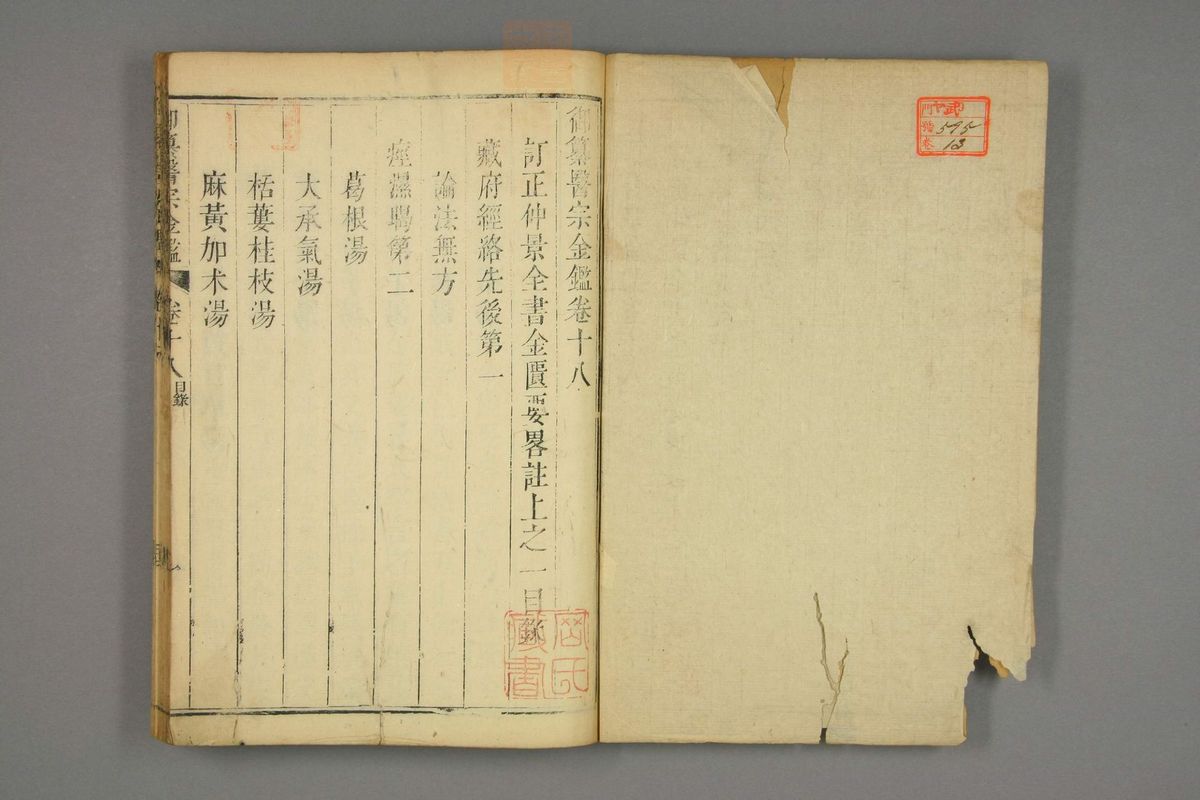 武
門 ヤ
號 595
卷 13
御纂醫宗金鑑卷十八
訂正仲景全書金匱要畧註上之一目錄
藏府經絡先後第一
論法無方
痙濕暍第二
葛根湯
大承氣湯
栝蔞桂枝湯
麻黃加朮湯
御纂醫宗金鑑 卷十八 目錄
藏書